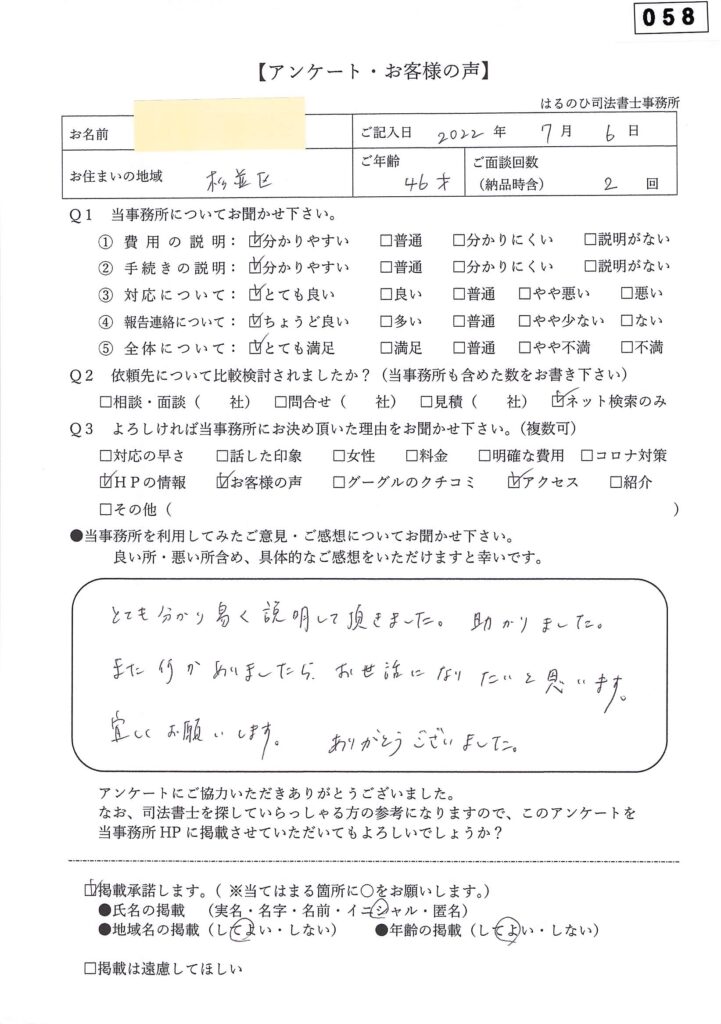 058
【アンケート・お客様の声】
はるのひ司法書士事務所
お名前
ご記入日 2022 年 7 月 6 日
お住まいの地域 杉並区
ご年齢 46才
ご面談回数（納品時含） 2 回
Q1 当事務所についてお聞かせ下さい。
① 費用の説明： ☑分かりやすい □普通 □分かりにくい □説明がない
② 手続きの説明： ☑分かりやすい □普通 □分かりにくい □説明がない
③ 対応について： ☑とても良い □良い □普通 □やや悪い □悪い
④ 報告連絡について： ☑ちょうど良い □多い □普通 □やや少ない □ない
⑤ 全体について： ☑とても満足 □満足 □普通 □やや不満 □不満
Q2 依頼先について比較検討されましたか？（当事務所も含めた数をお書き下さい）
□相談・面談（ 社） □問合せ（ 社） □見積（ 社） ☑ネット検索のみ
Q3 よろしければ当事務所にお決め頂いた理由をお聞かせ下さい。（複数可）
□対応の早さ □話した印象 □女性 □料金 □明確な費用 □コロナ対策
☑HPの情報 ☑お客様の声 □グーグルのクチコミ ☑アクセス □紹介
□その他（ ）
●当事務所を利用してみたご意見・ご感想についてお聞かせ下さい。
良い所・悪い所含め、具体的なご感想をいただけますと幸いです。
とても分かり易く説明して頂きました。 助かりました。
また何かありましたら、お世話になりたいと思います。
宜しくお願いします。 ありがとうございました。
アンケートにご協力いただきありがとうございました。
なお、司法書士を探していらっしゃる方の参考になりますので、このアンケートを
当事務所HPに掲載させていただいてもよろしいでしょうか？
☑掲載承諾します。（ ※当てはまる箇所に○をお願いします。）
●氏名の掲載 （実名・名字・名前・イニシャル・匿名）
●地域名の掲載（してよい・しない） ●年齢の掲載（してよい・しない）
□掲載は遠慮してほしい